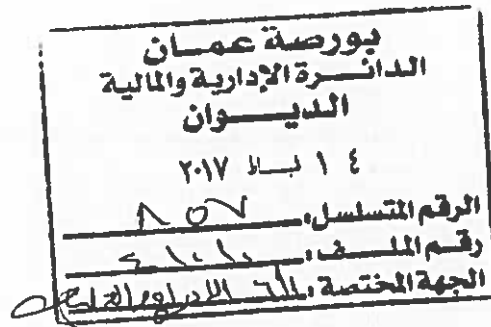 بورصة عمان
الدائرة الإدارية والمالية
الديوان
١٤ شباط ٢٠١٧
الرقم المتسلسل: ٨٥٧
رقم الملف:
الجهة المختصة: الإدراج